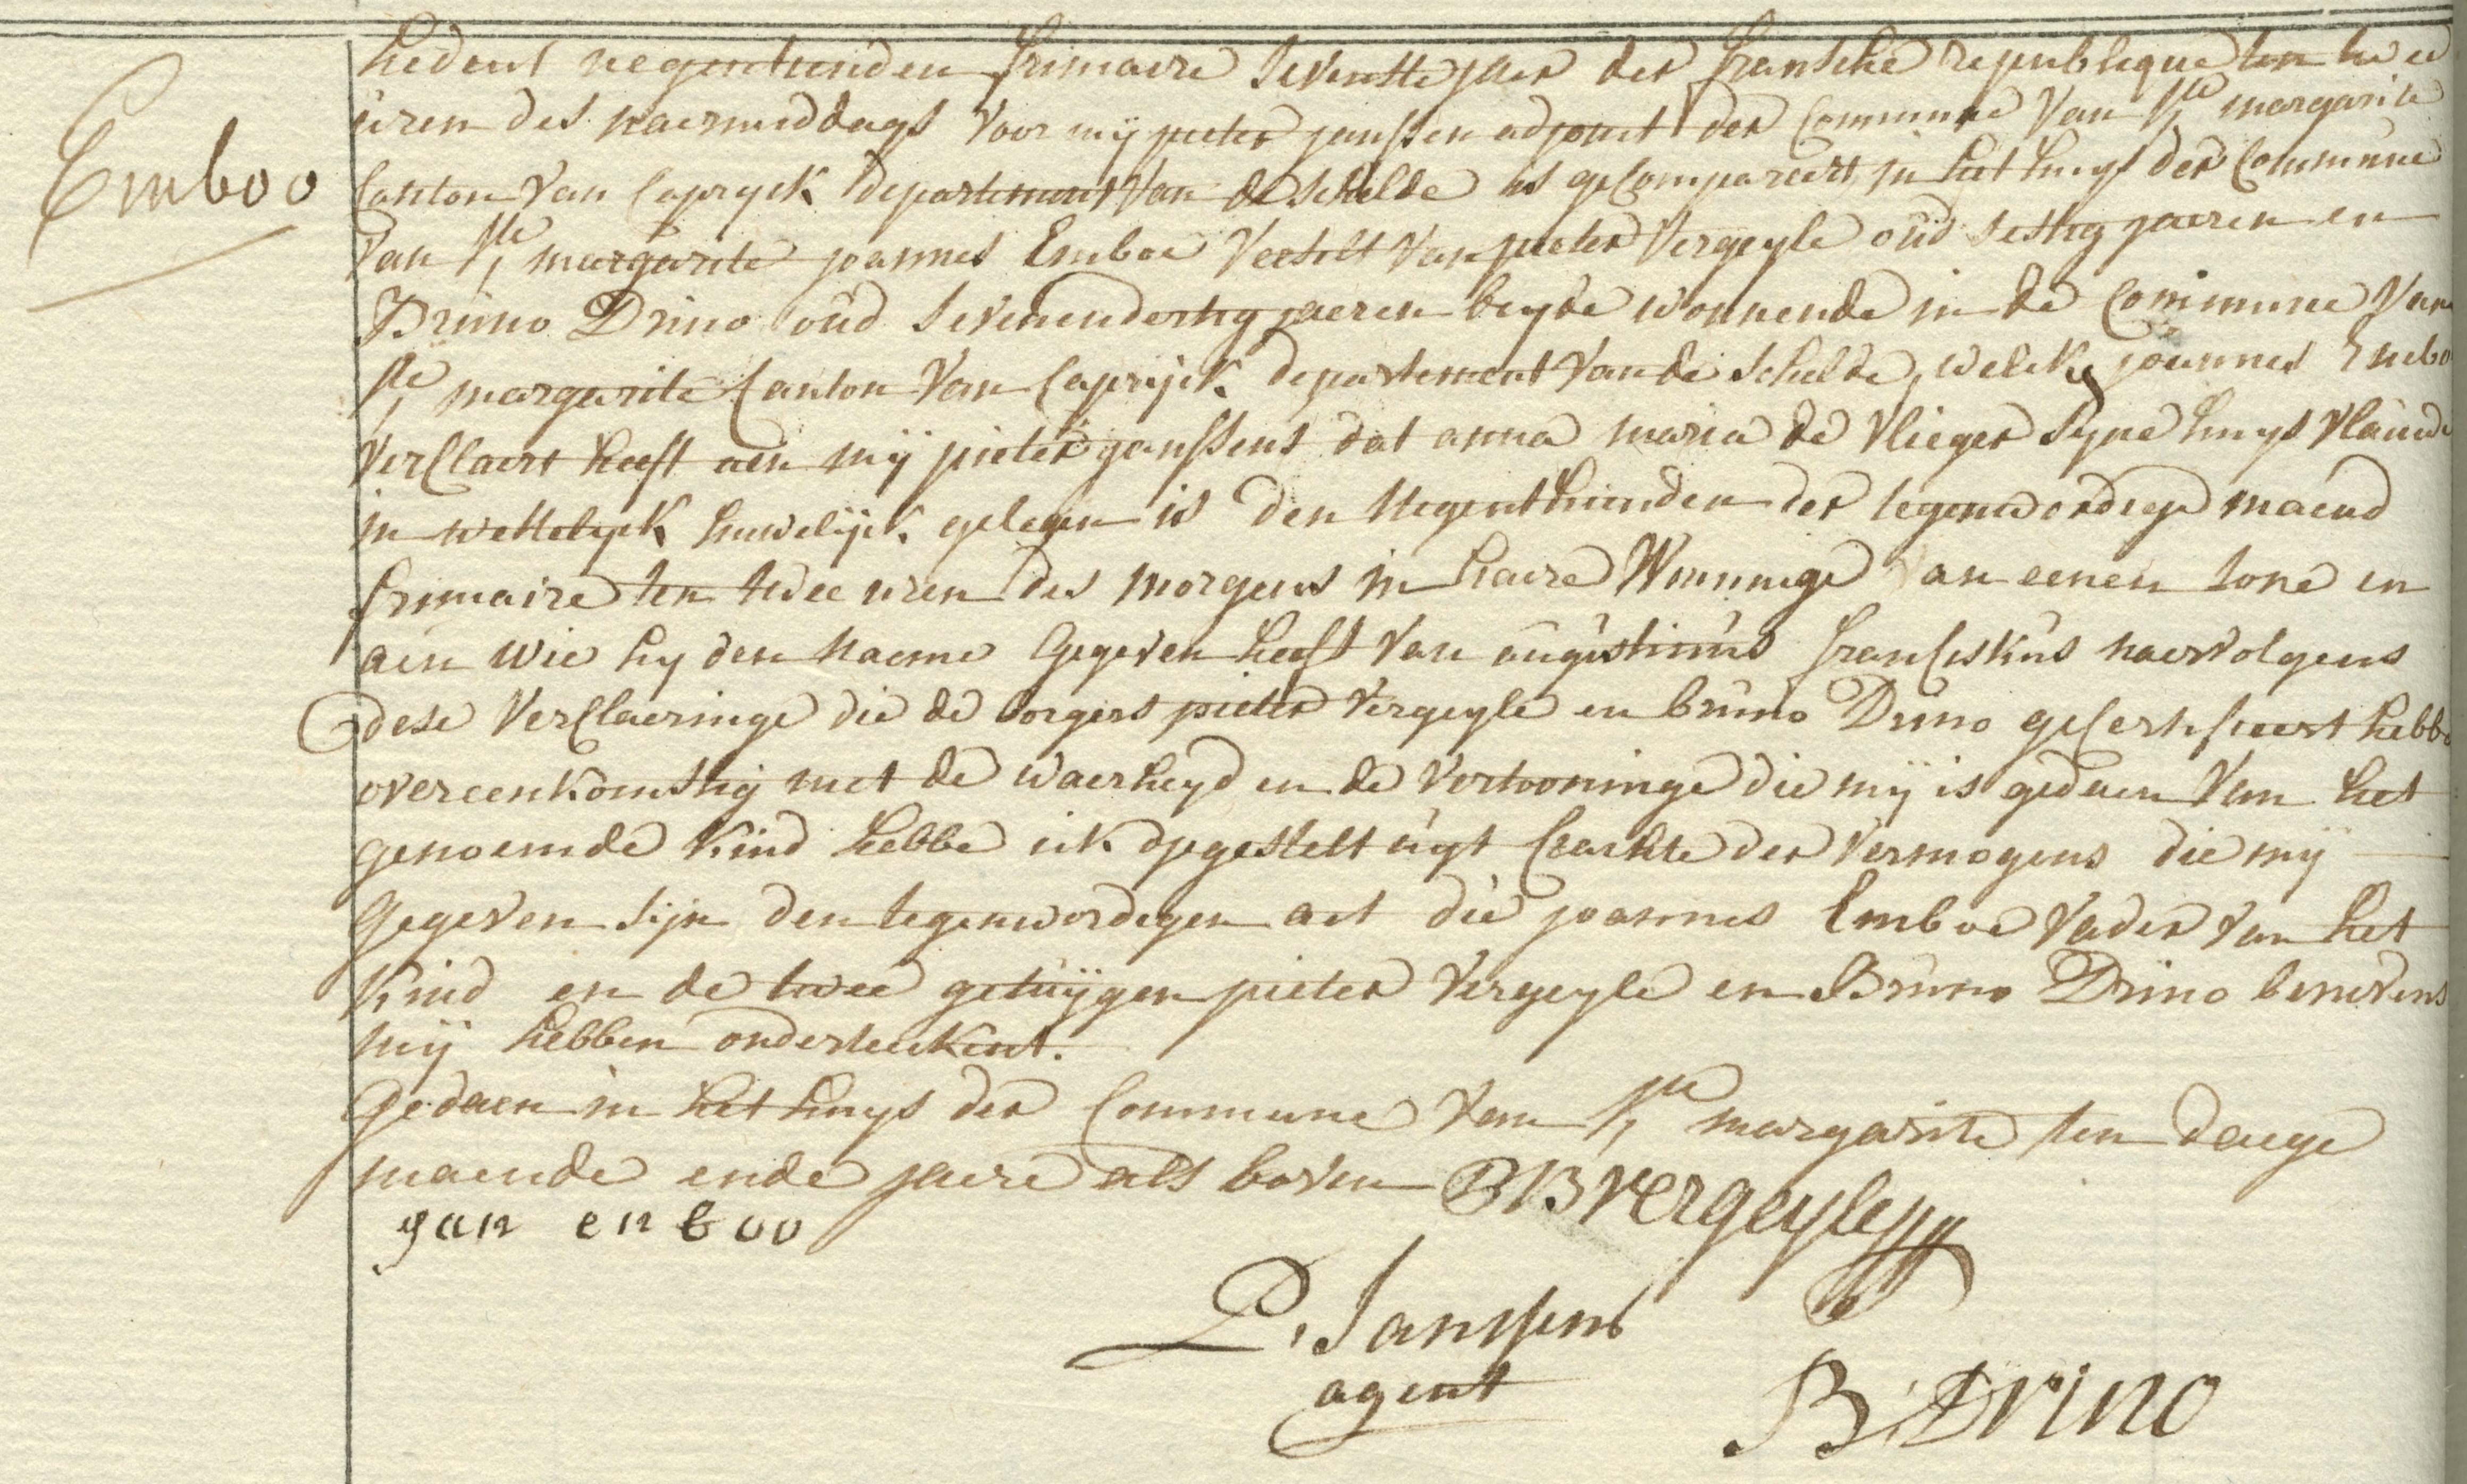 Emboo
hedent negenthinden frimaire sevenste jaer der fransche republeque ten twee
uren des naermiddags voor mij pieter janssen adjoint der Commune van Ste margarite
Canton van Capryck departement van de schelde is gecompareert in het huys der Commune
van Ste margarite joannes Emboe verselt van pieter vergeyle oud sestig jaeren en
Bruno Drino oud sevenendertig jaeren beyde wonnende in de Commune van
Ste margarite Canton van Caprijck departement van de schelde, welcke joannes Embo
verclaert heeft aen mij pieter janssens dat anna maria de vlieger syne huys vrauwe
in wettelyck huwelijck gelegen is den negenthinden der tegenwordige maend
frimaire ten twee uren des morgens in haere Wonninge van eenen sone en
aen wie hy den naeme gegeven heeft van augustinus franciskus naervolgens
dese verclaeringe die de borgers pieter vergeyle en bruno Drino gecertifieert hebbe
overeenkomstig met de waerheyd en de vertooninge die mij is gedaen van het
genoemde kind hebbe ick opgestelt uyt crachte der vermogens die mij
gegeven sijn den tegenwordigen act die joannes Emboe vader van het
kind en de twee getuijgen pieter vergeyle en Bruno Drino benevens
mij hebben onderteekent.
gedaen in het huys der Commune van Ste margarite ten daege
maende ende jaere als boven B B Vergeyle
yan enboo
P. Janssens
agent
B: Drino